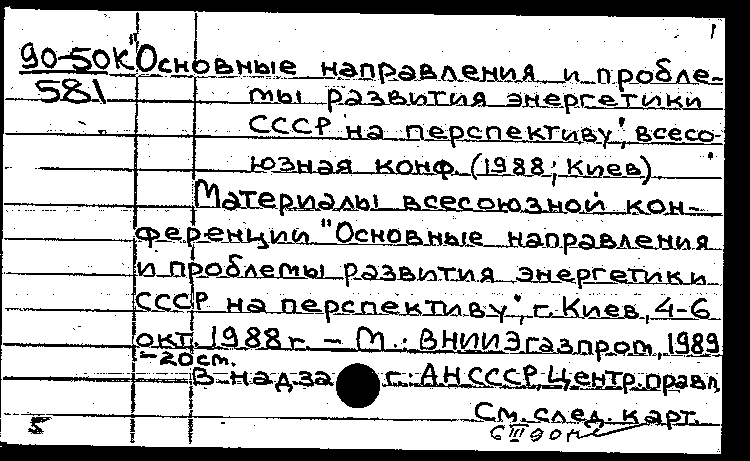 1
90-50К "Основные направления и пробле-
581 мы развития энергетики
СССР на перспективу", всесо-
юзная конф. (1988; Киев).
Материалы всесоюзной кон-
ференции "Основные направления
и проблемы развития энергетики
СССР на перспективу", г. Киев, 4-6
окт. 1988 г. - М.: ВНИИЭгазпром, 1989
-20см.
В надзаг.: АН СССР, Центр. правл.
См. след. карт.
5